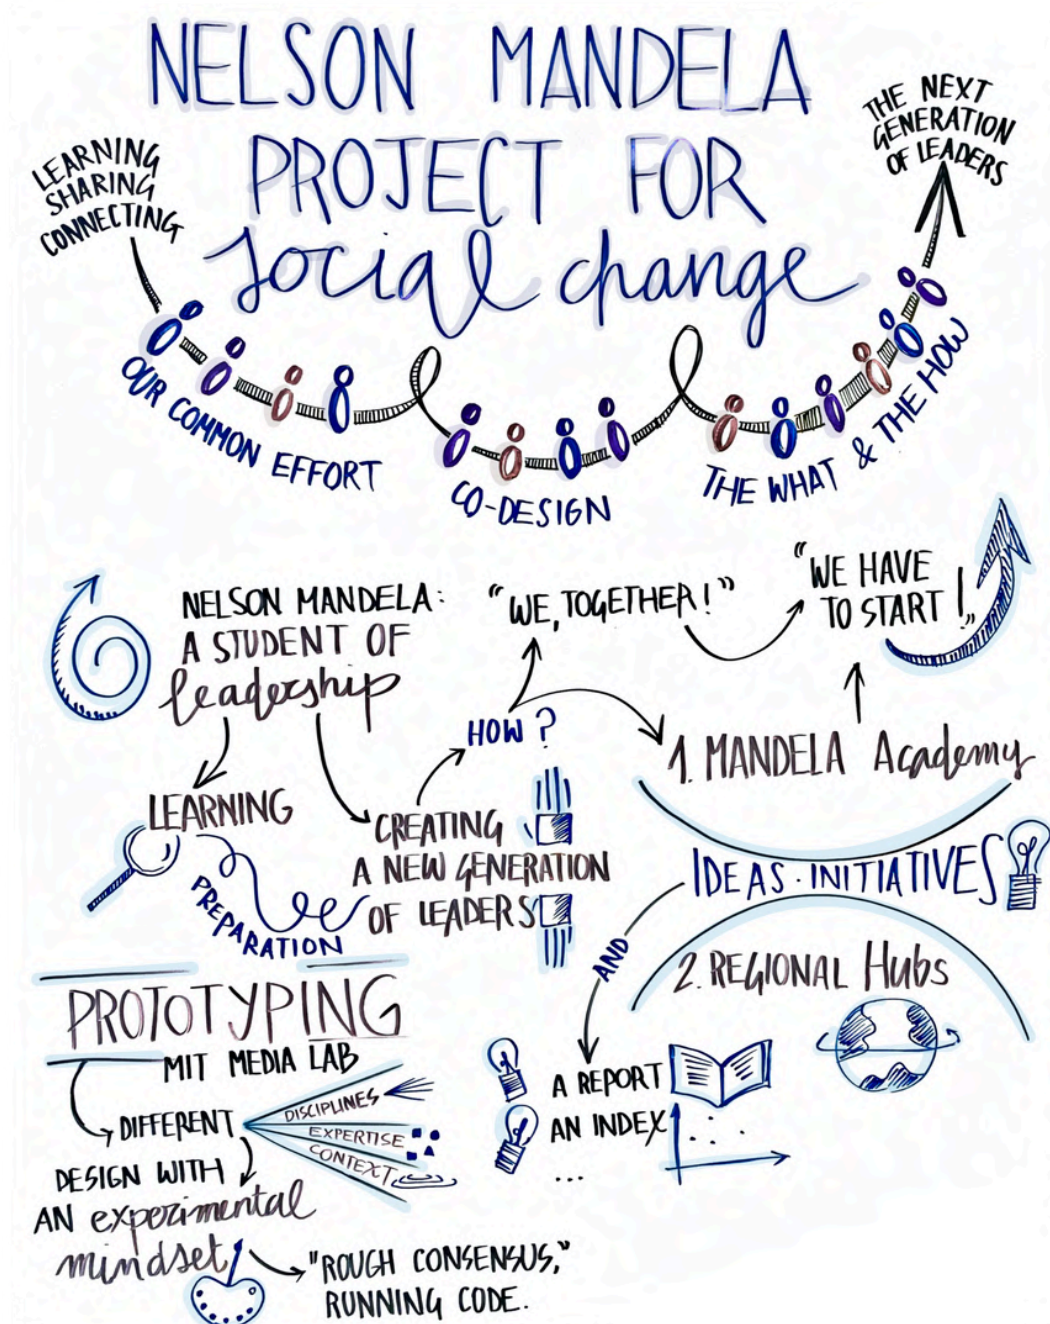 NELSON MANDELA
PROJECT FOR
social change
LEARNING
SHARING
CONNECTING
THE NEXT
GENERATION
OF LEADERS
OUR COMMON EFFORT
CO-DESIGN
THE WHAT & THE HOW
NELSON MANDELA:
A STUDENT OF
leadership
"WE, TOGETHER!"
"WE HAVE
TO START!"
HOW?
1. MANDELA Academy
LEARNING
PREPARATION
CREATING
A NEW GENERATION
OF LEADERS
IDEAS · INITIATIVES
AND
2. REGIONAL Hubs
A REPORT
AN INDEX
...
PROTOTYPING
MIT MEDIA LAB
DIFFERENT
DISCIPLINES
EXPERTISE
CONTEXT
DESIGN WITH
AN experimental
mindset
"ROUGH CONSENSUS,"
RUNNING CODE.